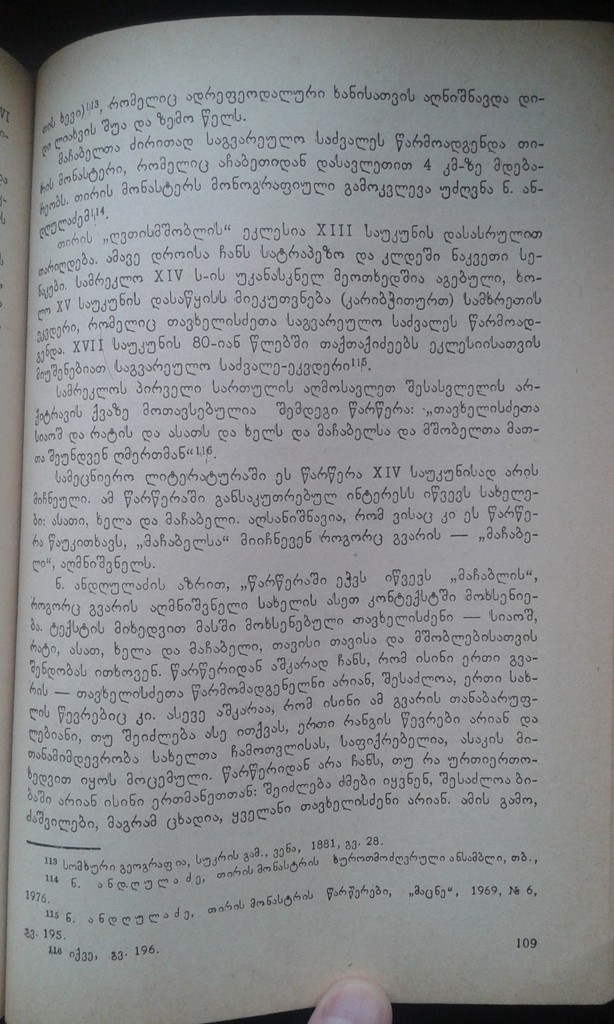 თის ხევი)¹¹³, რომელიც ადრეფეოდალური ხანისათვის აღნიშნავდა დი-
დი ლიახვის შუა და ზემო წელს.
მაჩაბელთა ძირითად საგვარეულო საძვალეს წარმოადგენდა თი-
რის მონასტერი, რომელიც აჩაბეთიდან დასავლეთით 4 კმ-ზე მდება-
რეობს. თირის მონასტერს მონოგრაფიული გამოკვლევა უძღვნა ნ. ან-
დღულაძემ¹¹⁴.
თირის „ღვთისმშობლის“ ეკლესია XIII საუკუნის დასასრულით
თარიღდება. ამავე დროისა ჩანს სატრაპეზო და კლდეში ნაკვეთი სე-
ნაკები. სამრეკლო XIV ს-ის უკანასკნელ მეოთხედშია აგებული, ხო-
ლო XV საუკუნის დასაწყისს მიეკუთვნება (კარიბჭითურთ) სამხრეთის
ეკვდერი, რომელიც თავხელისძეთა საგვარეულო საძვალეს წარმოად-
გენდა. XVII საუკუნის 80-იან წლებში თაქთაქიძეებს ეკლესიისათვის
მიუშენებიათ საგვარეულო საძვალე-ეკვდერი¹¹⁵.
სამრეკლოს პირველი სართულის აღმოსავლეთ შესასვლელის არ-
ქიტრავის ქვაზე მოთავსებულია შემდეგი წარწერა: „თავხელისძეთა
სიაოშ და რატის და ასათს და ხელს და მაჩაბელსა და მშობელთა მათ-
თა შეუნდვენ ღმერთმან“¹¹⁶.
სამეცნიერო ლიტერატურაში ეს წარწერა XIV საუკუნისად არის
მიჩნეული. ამ წარწერაში განსაკუთრებულ ინტერესს იწვევს სახელე-
ბი: ასათი, ხელა და მაჩაბელი. აღსანიშნავია, რომ ვისაც კი ეს წარწე-
რა წაუკითხავს, „მაჩაბელსა“ მიიჩნევენ როგორც გვარის — „მაჩაბე-
ლი“, აღმნიშვნელს.
ნ. ანდღულაძის აზრით, „წარწერაში ეჭვს იწვევს „მაჩაბლის“,
როგორც გვარის აღმნიშვნელი სახელის ასეთ კონტექსტში მოხსენიე-
ბა. ტექსტის მიხედვით მასში მოხსენებული თავხელისძენი — სიაოშ,
რატი, ასათ, ხელა და მაჩაბელი, თავისი თავისა და მშობლებისათვის
შენდობას ითხოვენ. წარწერიდან აშკარად ჩანს, რომ ისინი ერთი გვა-
რის — თავხელისძეთა წარმომადგენელნი არიან, შესაძლოა, ერთი სახ-
ლის წევრებიც კი. ასევე აშკარაა, რომ ისინი ამ გვარის თანაბარუფ-
ლებიანი, თუ შეიძლება ასე ითქვას, ერთი რანგის წევრები არიან და
თანამიმდევრობა სახელთა ჩამოთვლისას, საფიქრებელია, ასაკის მი-
ხედვით იყოს მოცემული. წარწერიდან არა ჩანს, თუ რა ურთიერთო-
ბაში არიან ისინი ერთმანეთთან: შეიძლება ძმები იყვნენ, შესაძლოა ბი-
ძაშვილები, მაგრამ ცხადია, ყველანი თავხელისძენი არიან. ამის გამო,
¹¹³ სომხური გეოგრაფია, სუკრის გამ., ვენა, 1881, გვ. 28.
¹¹⁴ ნ. ანდღულაძე, თირის მონასტრის ხუროთმოძღვრული ანსამბლი, თბ.,
1976.
¹¹⁵ ნ. ანდღულაძე, თირის მონასტრის წარწერები, „მაცნე“, 1969, № 6,
გვ. 195.
¹¹⁶ იქვე, გვ. 196.
109